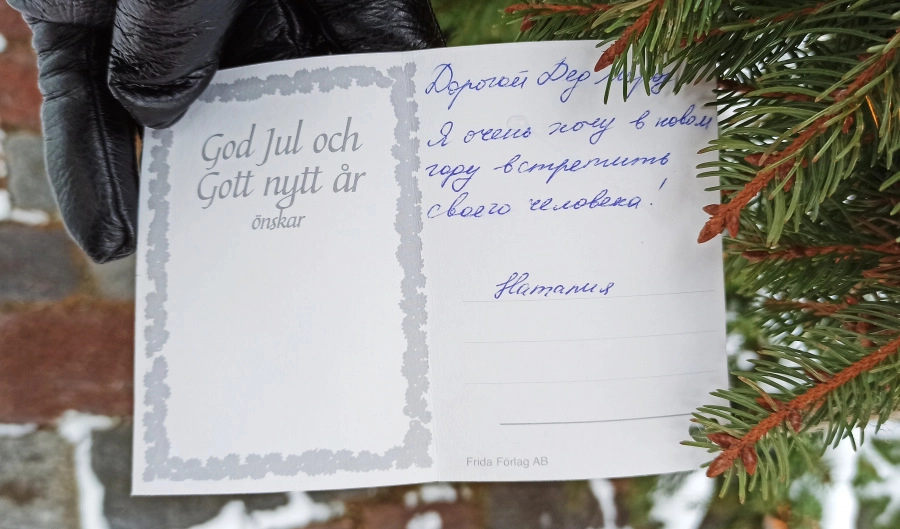 God Jul och
Gott nytt år
önskar
Дорогой Дед Мороз
Я очень хочу в новом
году встретить
своего человека!
Наталия
Frida Förlag AB